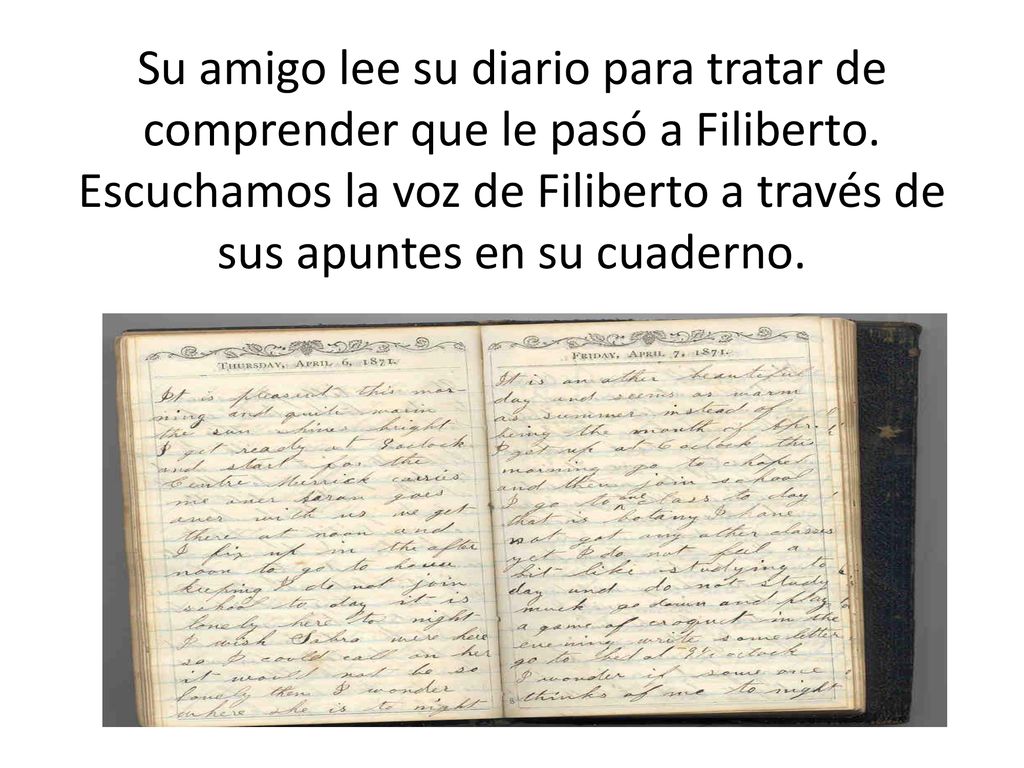 Su amigo lee su diario para tratar de
comprender que le pasó a Filiberto.
Escuchamos la voz de Filiberto a través de
sus apuntes en su cuaderno.
Thursday, April 6, 1871.
It is pleasent this mor-
ning and quite warm
the sun shines bright
I get ready at 9 oclock
and start for the
Centre Merrick carries
me over Saran goes
over with us we get
there at noon and
I fix up in the after
noon to go to house
keeping I do not join
school to day it is
lonely here to night
I wish Sabra were here
so I could call on her
it would not be so
lonely then I wonder
where she is to night
Friday, April 7, 1871.
It is an other beautiful
day and seems as warm
as summer instead of
being the month of Apr.
I get up at 6 oclock this
morning go to chapel
and then join school
I go to one class to day
that is botany I have
not got any other classes
yet I do not feel a
bit like studying to
day and do not study
much go down and play
a game of croquet in the
evening write some letter
go to bed at 9 oclock
I wonder if some one
thinks of me to night